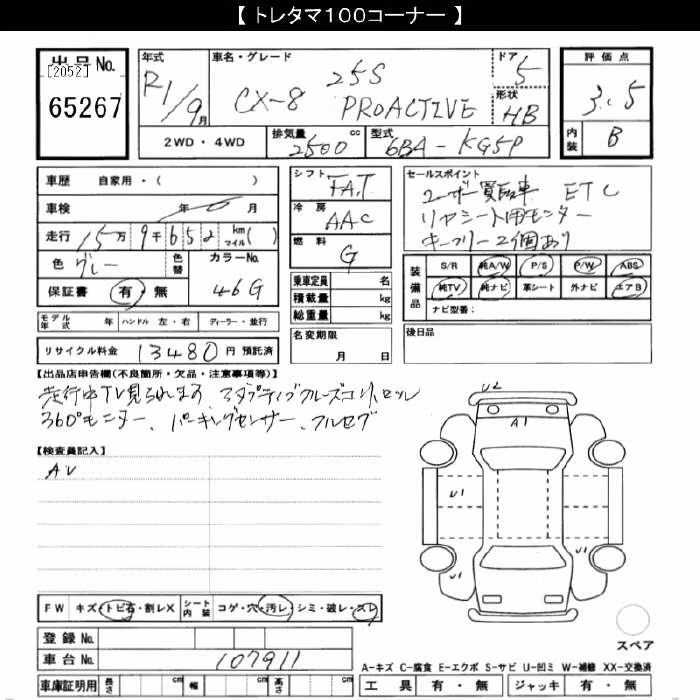 【 トレタマ100コーナー 】
出品No.
[2052]
65267
年式
R1/9月
車名・グレード
25S
CX-8 PROACTIVE
ドア
5
形状
HB
評価点
3.5
内装
B
2WD・4WD
排気量
2500 cc
型式
6BA-KG5P
車歴 自家用・( )
車検 年 月
走行 15万9千652 km マイル( )
色 グレー
色替
カラーNo.
46G
保証書 有・無
シフト
FAT
冷房
AAC
燃料
G
乗車定員 名
積載量 kg
総重量 kg
セールスポイント
ユーザー買取車 ETC
リヤシート用モニター
キーフリー2個あり
装備品
S/R 純A/W P/S P/W ABS
純TV 純ナビ 革シート 外ナビ エアB
ナビ型番:
モデル年式 年 ハンドル 左・右 ディーラー・並行
名変期限
月 日
後日品
リサイクル料金 13480 円 預託済
【出品店申告欄(不良箇所・欠品・注意事項等)】
走行中TV見られます、アダプティブクルーズコントロール
360°モニター、パーキングセンサー、フルセグ
【検査員記入】
AV
U2
A1
U1
U1
U1
FW キズ・トビ石・割レX
シート内装 コゲ・穴・汚レ・シミ・破レ・スレ
登録No.
車台No. 107911
スペア
A-キズ C-腐食 E-エクボ S-サビ U-凹ミ W-補修 XX-交換済
車庫証明用 長さ cm 幅 cm 高さ cm
工具 有・無 ジャッキ 有・無